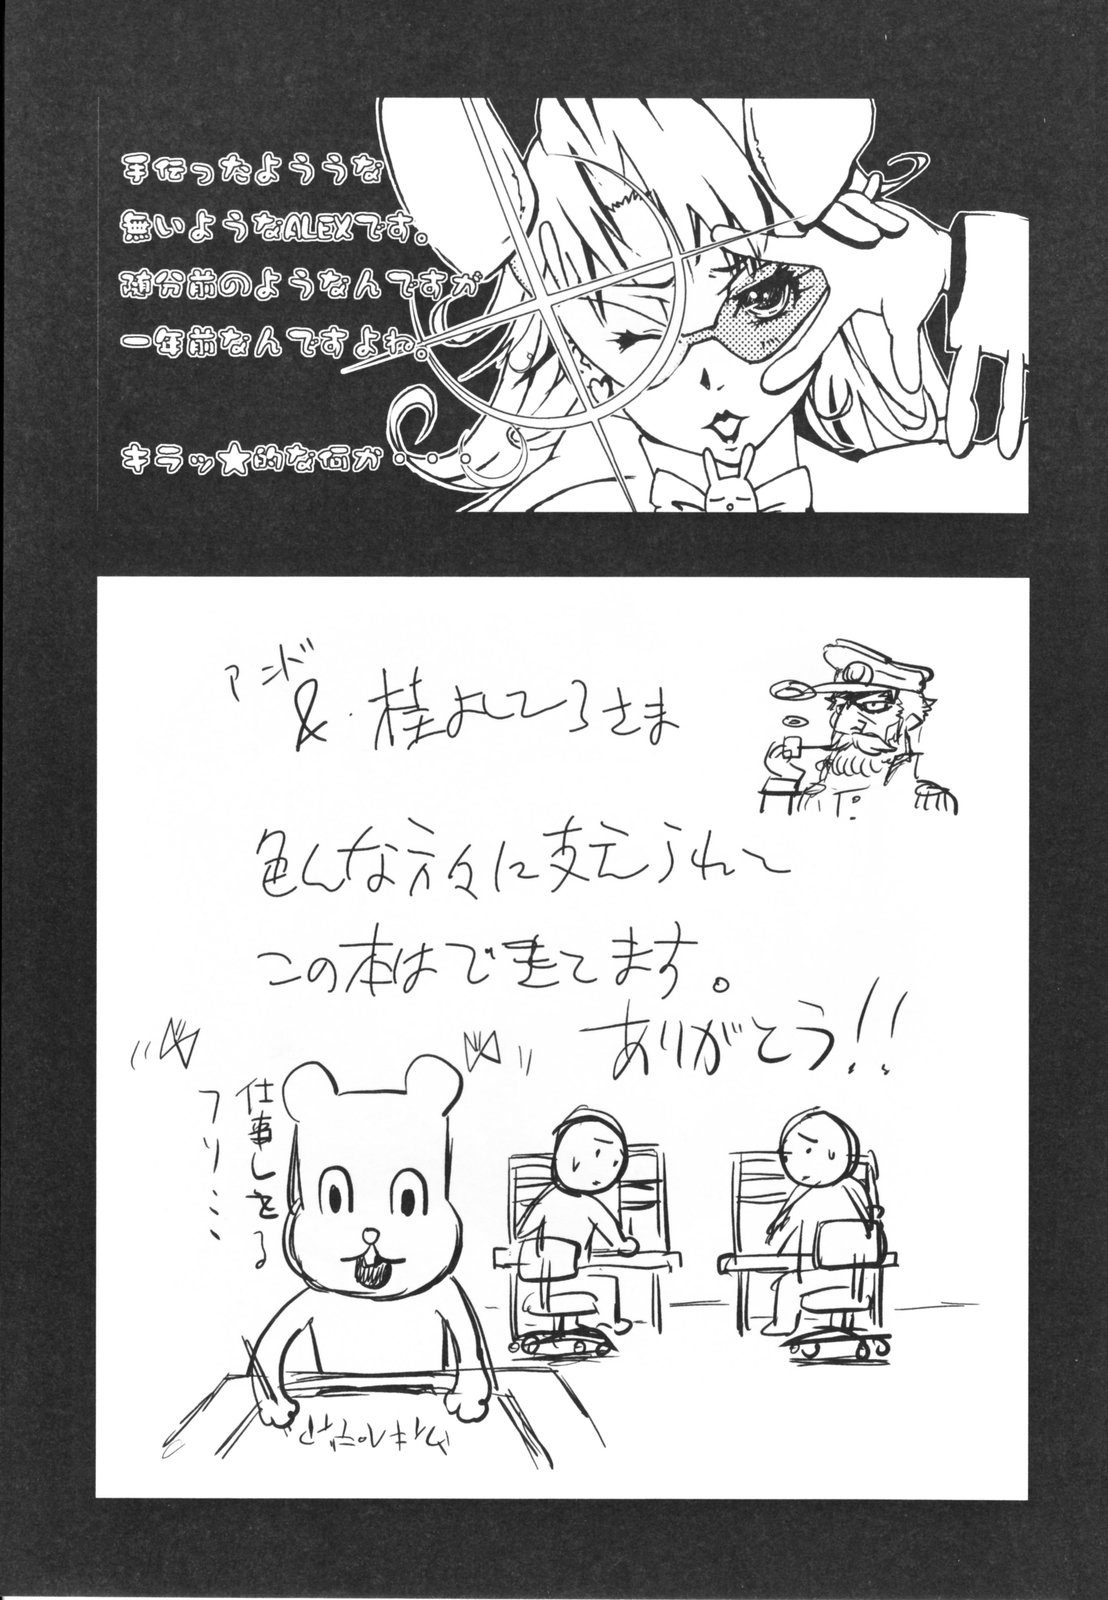 手伝ったよううな
無いようなALEXです。
随分前のようなんですが
一年前なんですよね。
キラッ★的な何か・・・。
アンド
&・桂よしひろさま
色んな方々に支えられて
この本はできてます。
ありがとう!!
仕事しとる
フリ・・・